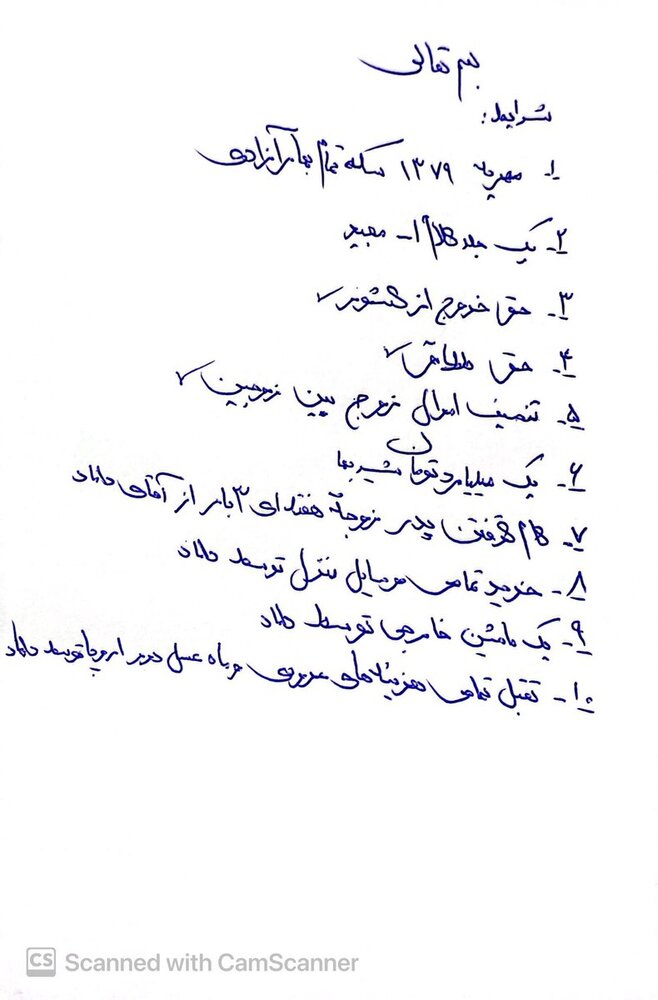 بسم تعالی
شرایط:
۱- مهریه ۱۳۷۹ سکه تمام بهار آزادی
۲- یک جلد کلام ا... مجید
۳- حق خروج از کشور ✓
۴- حق طلاق ✓
۵- تنصیف اموال زوج بین زوجین ✓
۶- یک میلیارد تومان شیربها
۷- کام گرفتن پدر زوجه هفته ای ۳ بار از آقای داماد
۸- خرید تمامی وسایل منزل توسط داماد
۹- یک ماشین خارجی توسط داماد
۱۰- تقبل تمامی هزینه های عروسی و ماه عسل دور اروپا توسط داماد
CS Scanned with CamScanner